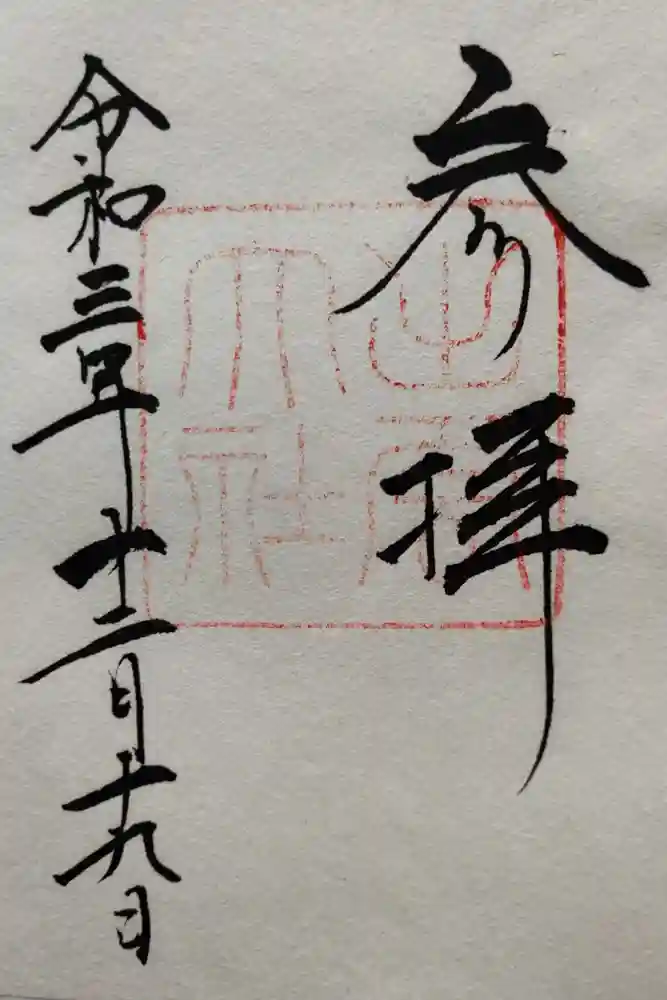 参拝
令和三年十二月十九日